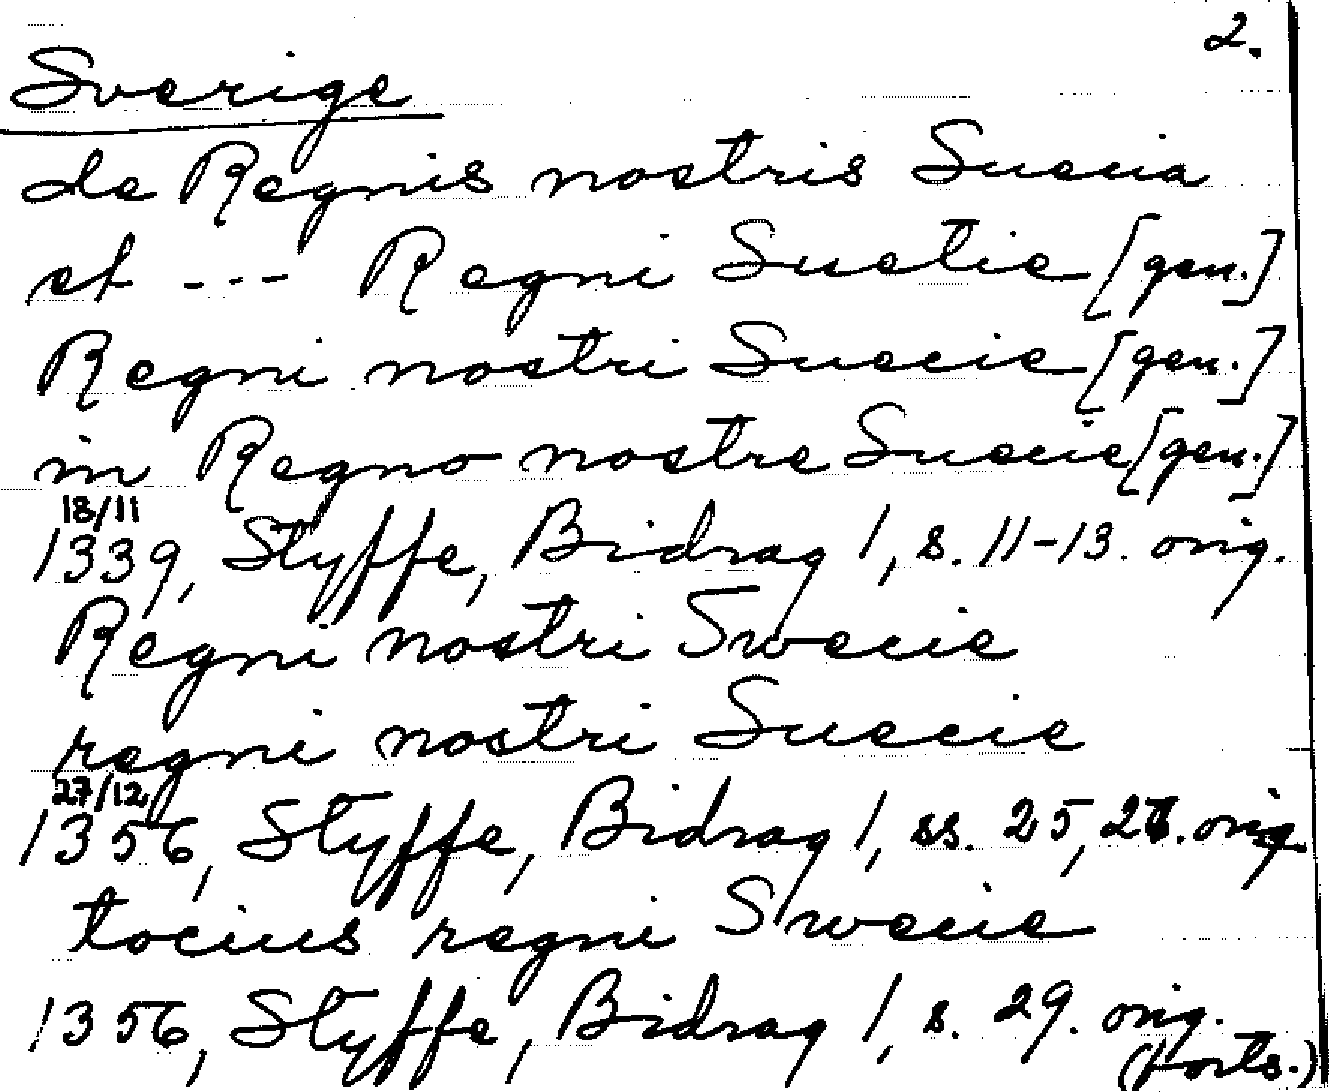 2.
Sverige
de Regnis nostris Suecia
et --- Regni Suetie [gen.]
Regni nostri Suecie [gen.]
in Regno nostre Suecie [gen.]
18/11
1339, Styffe, Bidrag 1, s. 11-13. orig.
Regni nostri Swecie
regni nostri Suecie
27/12
1356, Styffe, Bidrag 1, ss. 25, orig.
tocius regni Swecie
1356, Styffe, Bidrag 1, s. 29. orig.
(forts.)